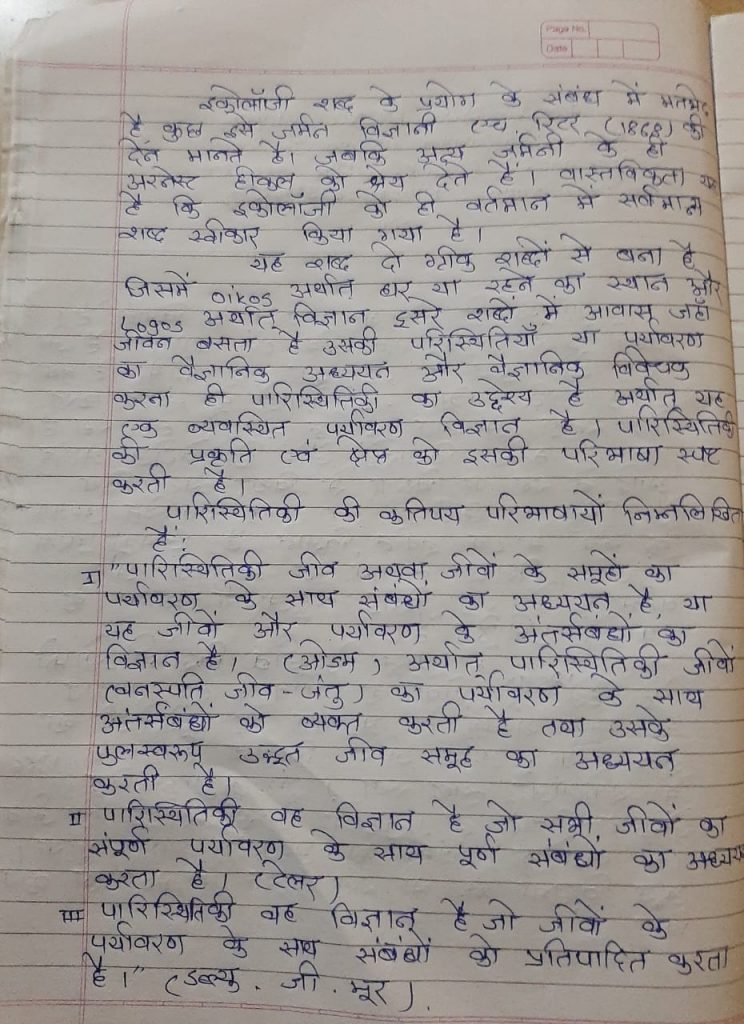 Page No.
Date
इकोलॉजी शब्द के प्रयोग के संबंध में मतभेद
है कुछ इसे जर्मन विज्ञानी एच. रिटर (1868) की
देन मानते है। जबकि अन्य जर्मनी के ही
अरनेस्ट हीकल को श्रेय देते हैं। वास्तविकता यह
है कि इकोलॉजी को ही वर्तमान में सर्वमान्य
शब्द स्वीकार किया गया है।
यह शब्द दो ग्रीक शब्दों से बना है
जिसमें oikos अर्थात घर या रहने का स्थान और
Logos अर्थात् विज्ञान दूसरे शब्दों में आवास जहाँ
जीवन बसता है उसकी परिस्थितियाँ या पर्यावरण
का वैज्ञानिक अध्ययन और वैज्ञानिक विवेचक
करना ही पारिस्थितिकी का उद्देश्य है अर्थात् यह
एक व्यवस्थित पर्यावरण विज्ञान है। पारिस्थितिकी
की प्रकृति एवं क्षेत्र को इसकी परिभाषा स्पष्ट
करती है।
पारिस्थितिकी की कतिपय परिभाषायें निम्नलिखित
है:
I "पारिस्थितिकी जीव अथवा जीवों के समूहों का
पर्यावरण के साथ संबंधों का अध्ययन है, या
यह जीवों और पर्यावरण के अंतर्संबंधों का
विज्ञान है। (ओडम) अर्थात् पारिस्थितिकी जीवों
(वनस्पति जीव-जंतु) का पर्यावरण के साथ
अंतर्संबंधों को व्यक्त करती है तथा उसके
फलस्वरूप उद्भूत जीव समूह का अध्ययन
करती है।
II पारिस्थितिकी वह विज्ञान है जो सभी जीवों का
संपूर्ण पर्यावरण के साथ पूर्ण संबंधों का अध्ययन
करता है। (टेलर)
III पारिस्थितिकी वह विज्ञान है जो जीवों के
पर्यावरण के साथ संबंधों को प्रतिपादित करता
है।" (डब्ल्यू. जी. मूर).